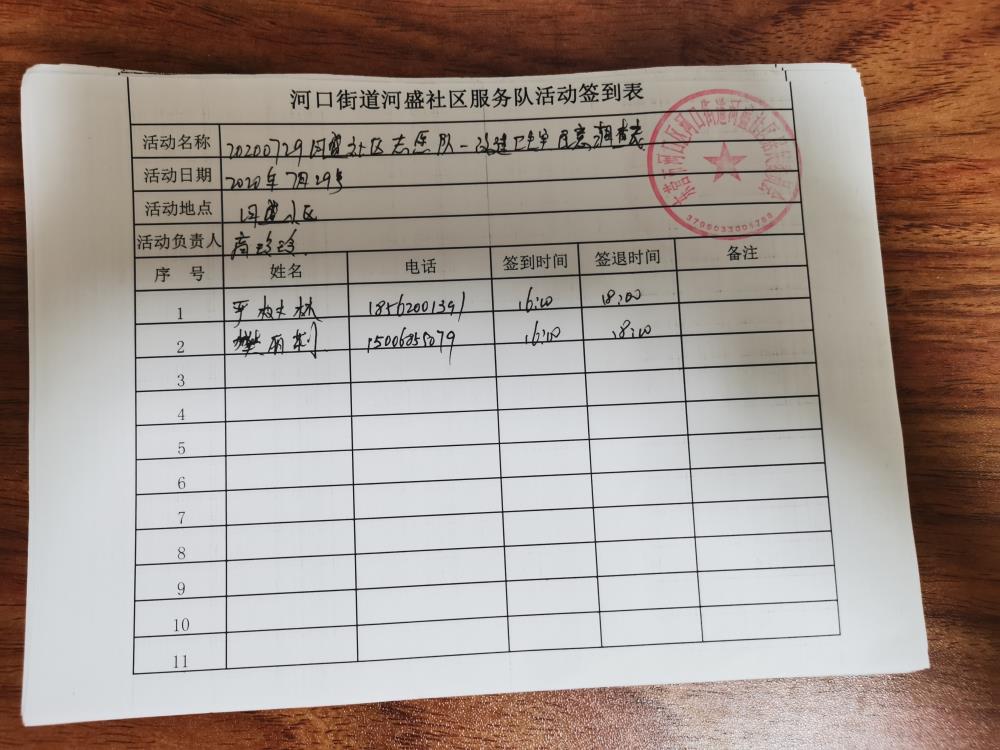 河口街道河盛社区服务队活动签到表
活动名称 20200729河盛社区志愿队一改建卫生室民意调查表
活动日期 2020年7月29号
活动地点 河盛社区
活动负责人 高珍珍
序号 姓名 电话 签到时间 签退时间 备注
1 林 18562001391 16:00 18:00
2 樊丽利 15006855079 16:00 18:00
3
4
5
6
7
8
9
10
11
东营市河口区河口街道河盛社区居民委员会